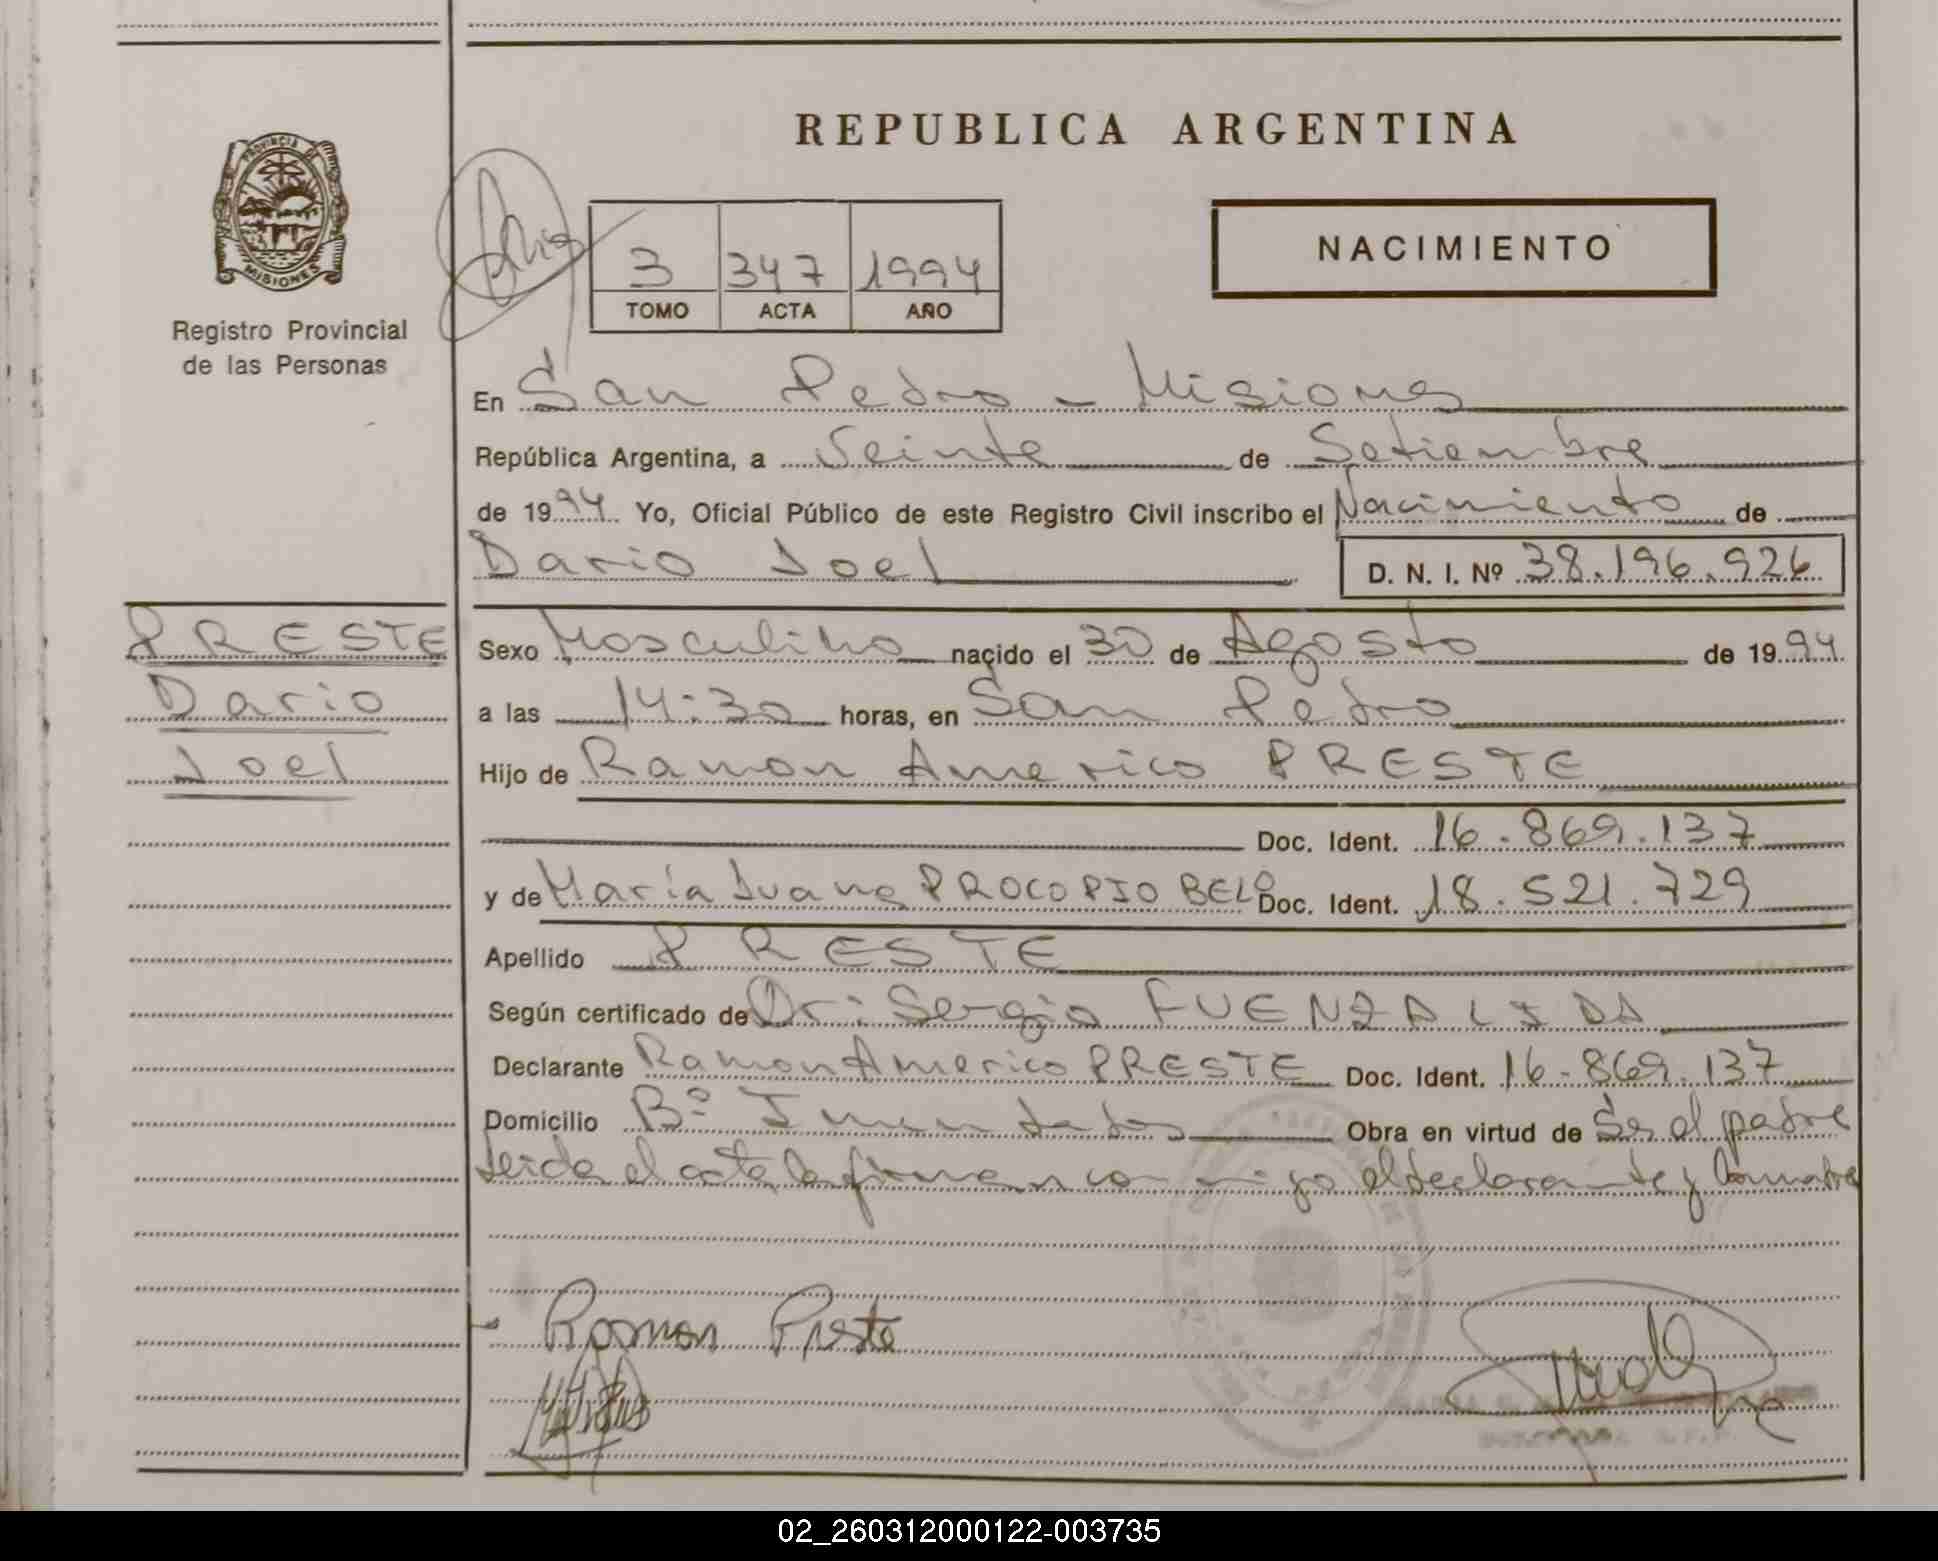 REPUBLICA ARGENTINA
PROVINCIA DE
MISIONES
Registro Provincial
de las Personas
3 347 1994
TOMO ACTA AÑO
NACIMIENTO
En San Pedro - Misiones
República Argentina, a Veinte de Setiembre
de 1994. Yo, Oficial Público de este Registro Civil inscribo el Nacimiento de
Dario Joel D. N. I. Nº 38.196.926
PRESTE
Dario
Joel
Sexo Masculino nacido el 30 de Agosto de 1994
a las 14:30 horas, en San Pedro
Hijo de Ramon Americo PRESTE
Doc. Ident. 16.869.137
y de María Juana PROCOPIO BELO Doc. Ident. 18.521.729
Apellido PRESTE
Según certificado de Dr: Sergio FUENZALIDA
Declarante Ramon Americo PRESTE Doc. Ident. 16.869.137
Domicilio Bº Obra en virtud de Ser el padre
Leida el acta la firman conmigo el declarante y la madre
Ramon Preste
02_260312000122-003735